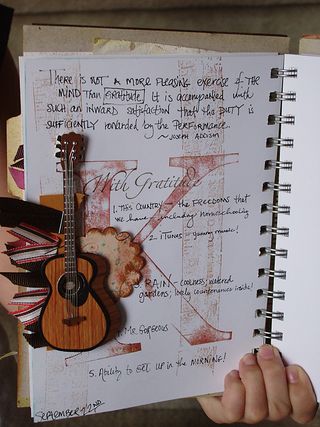 There is not a more pleasing exercise of the
mind than gratitude. It is accompanied with
such an inward satisfaction that the duty is
sufficiently rewarded by the performance.
~Joseph Addison
With Gratitude
1. This country - the freedoms that
we have - including homeschooling
2. iTunes - yummy music!
3. Rain - coolness; watered
gardens; lovely countenances inside!
4. Mr. Gorgeous
5. Ability to get up in the morning!
K
September 22nd